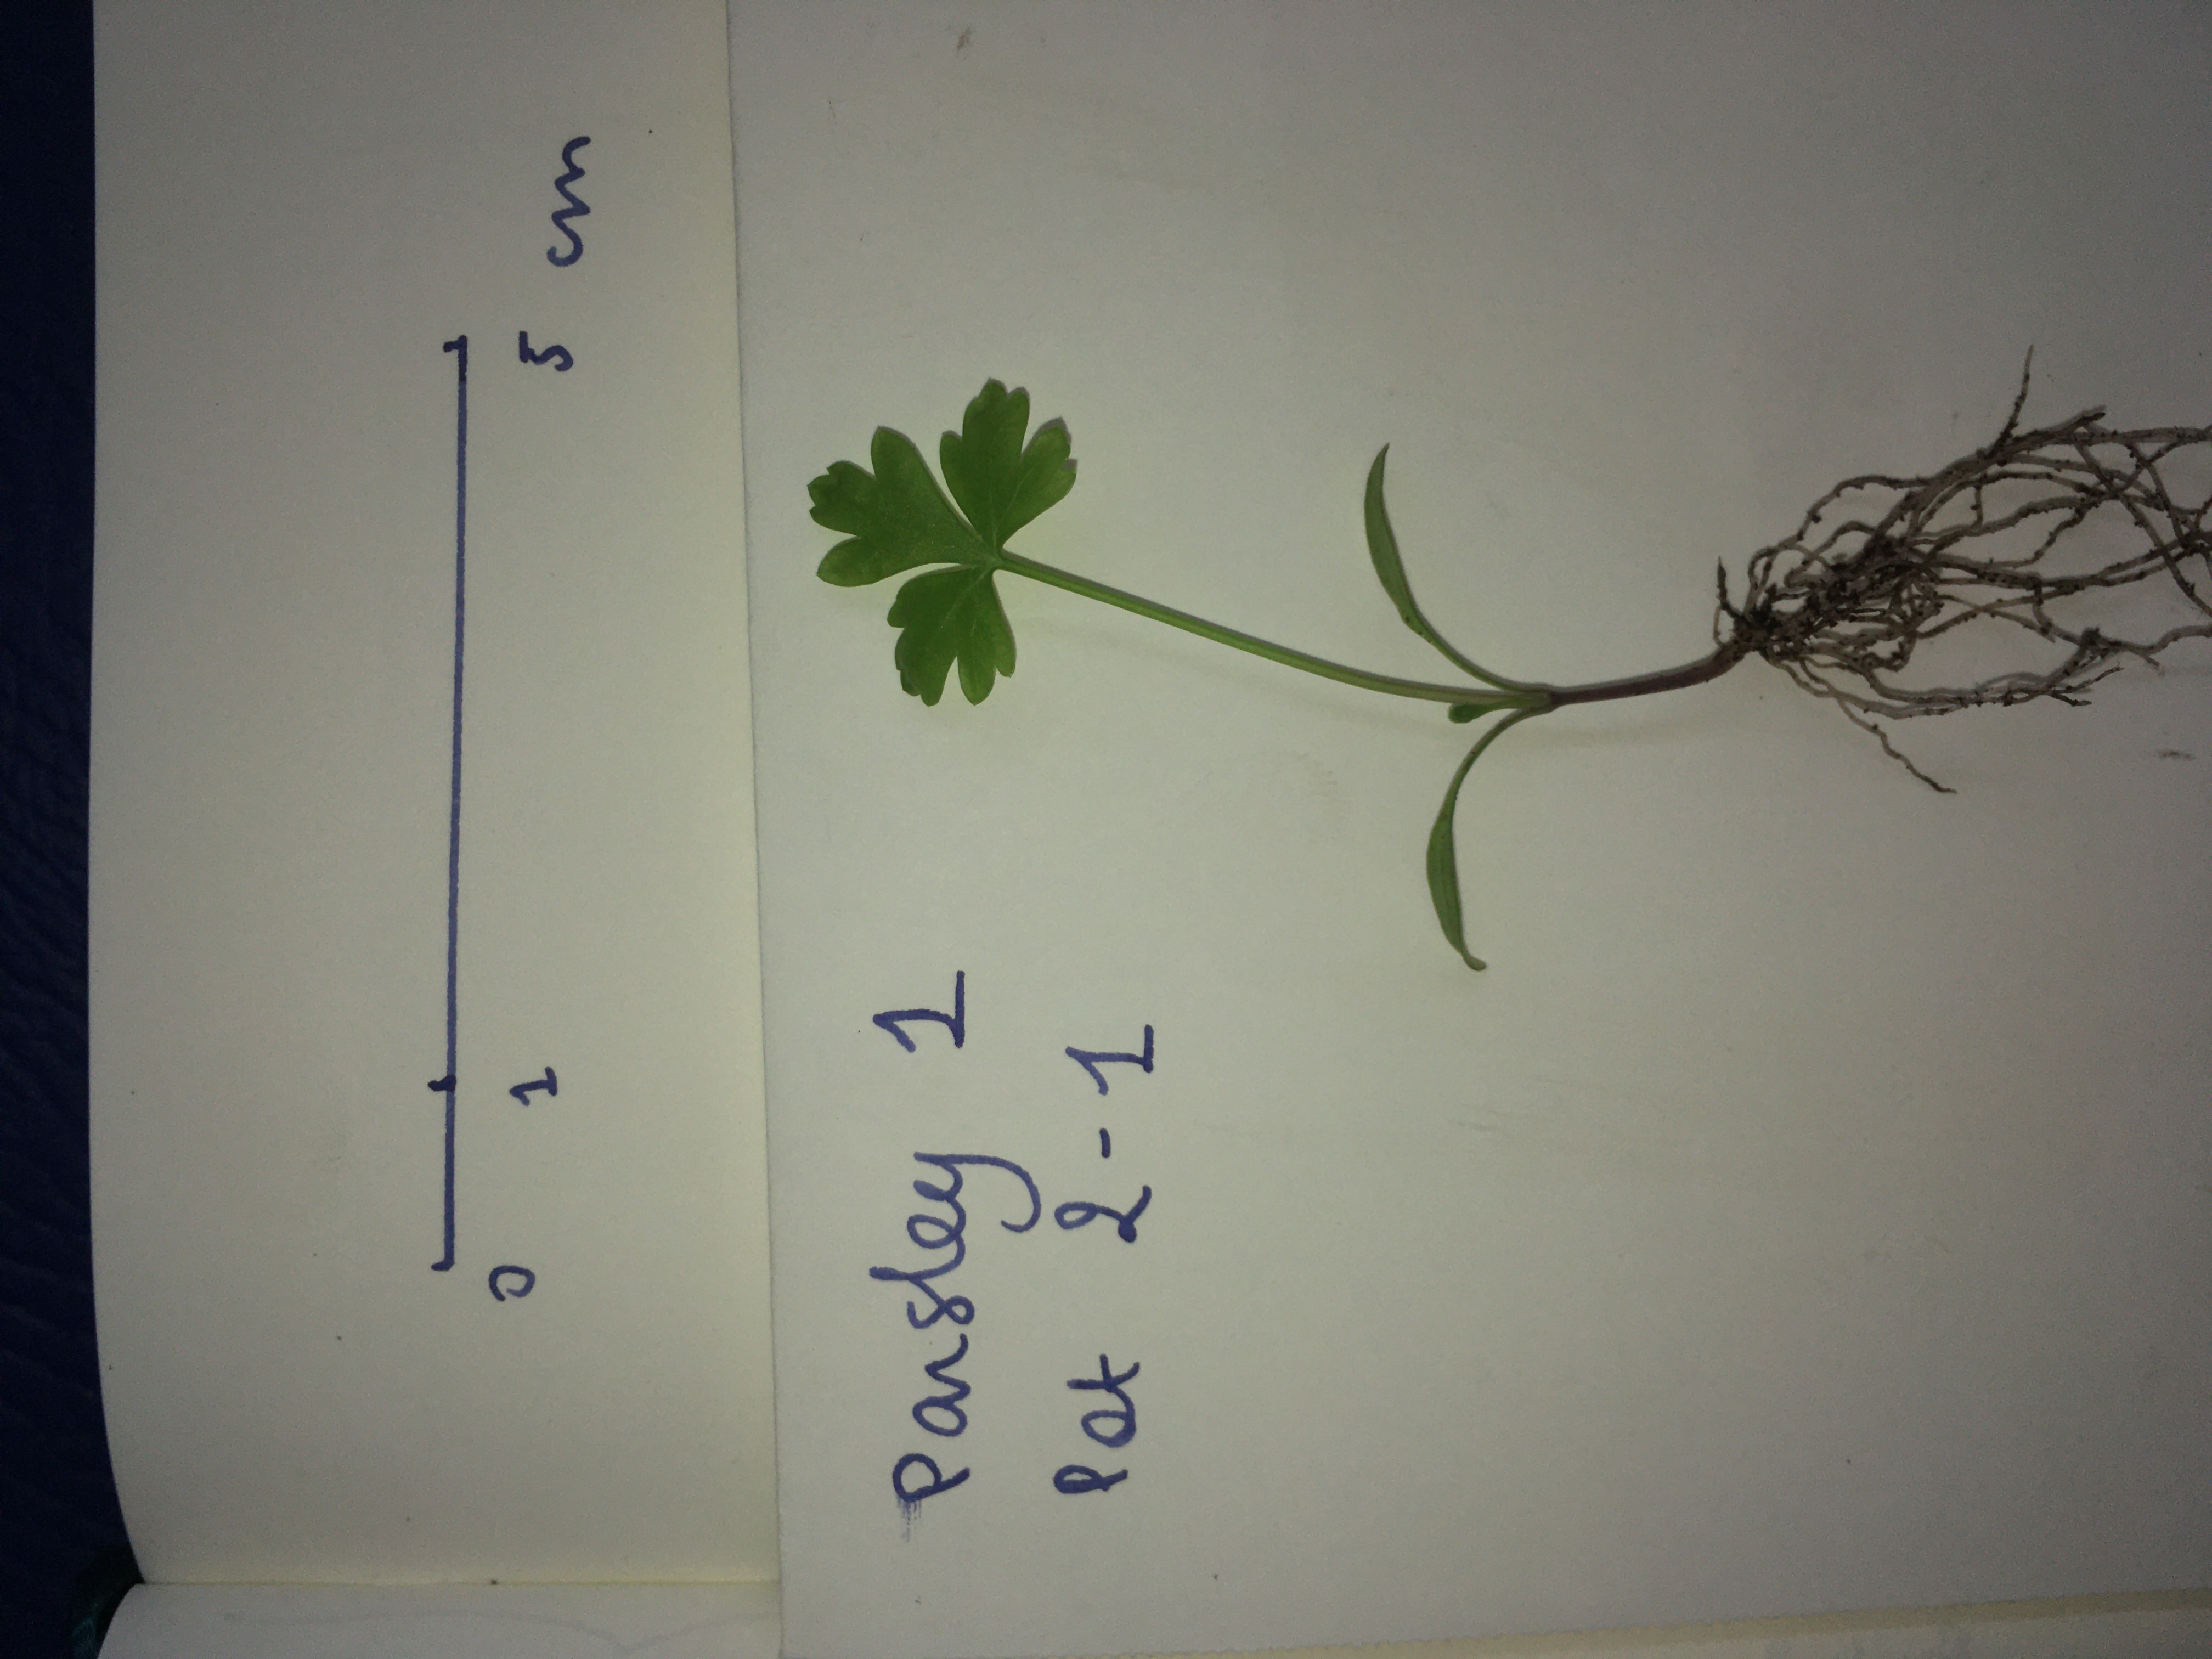 0 1 5 cm
Parsley 1
Pot 2-1